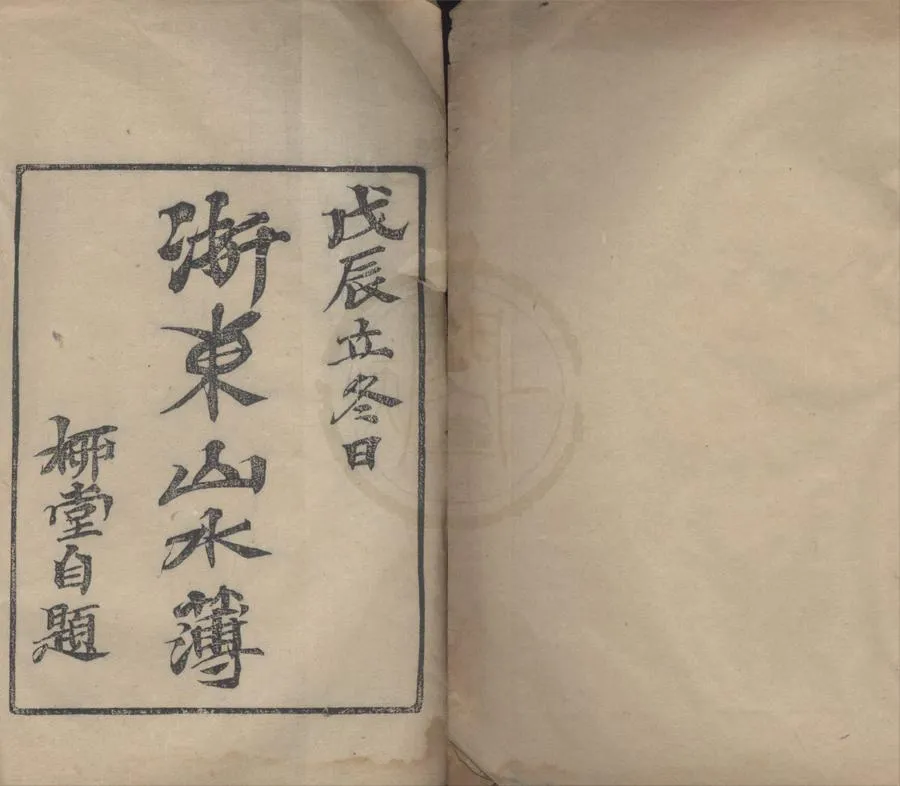 戊辰立冬日
浙東山水薄
柳堂自題